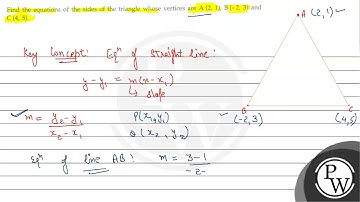 Find the equations of the sides of the triangle whose vertices are A (2, 1), B (- 2, 3) and
C (4, 5).
A (2, 1)
Key Concept: Eqⁿ of straight line:
y - y₁ = m(x - x₁)
↳ slope
m = y₂ - y₁ / x₂ - x₁
P(x₁, y₁)
Q (x₂, y₂)
B
(-2, 3)
C
(4, 5)
Eqⁿ of line AB: m = 3 - 1 / -2 -
PW